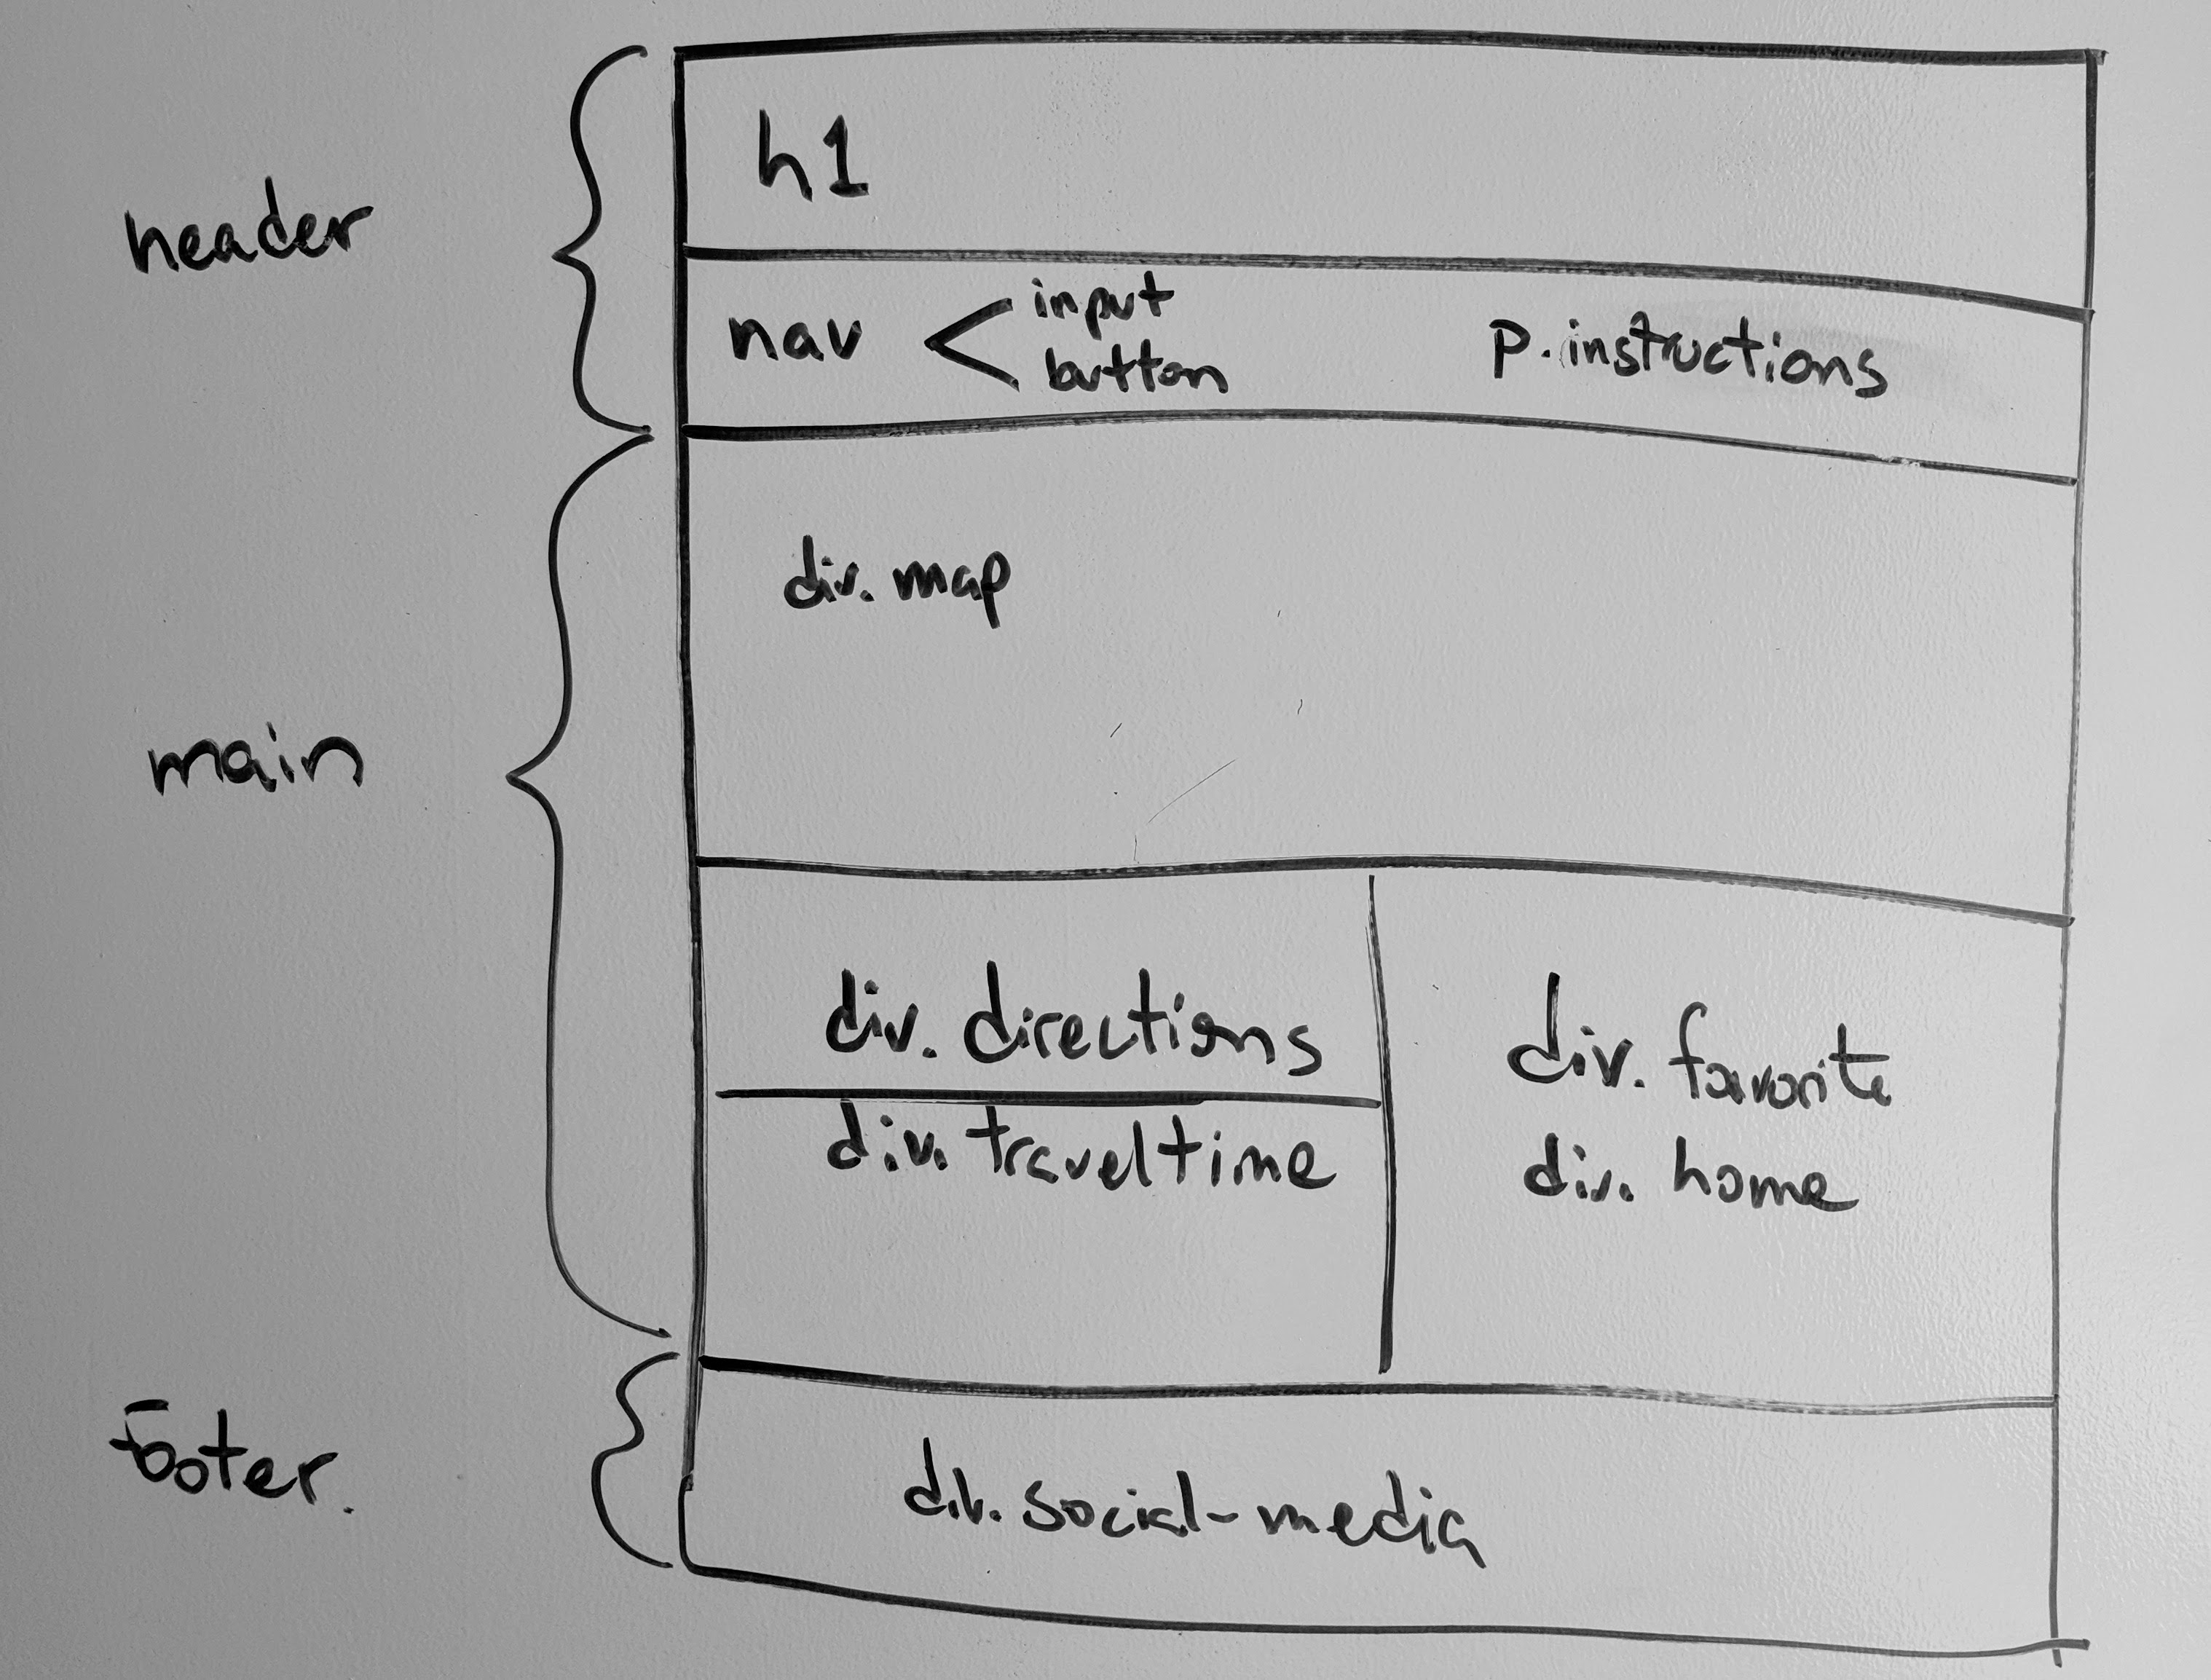 header
h1
nav < input
button
p.instructions
main
div.map
div.directions
div.traveltime
div.favorite
div.home
footer.
div.social-media